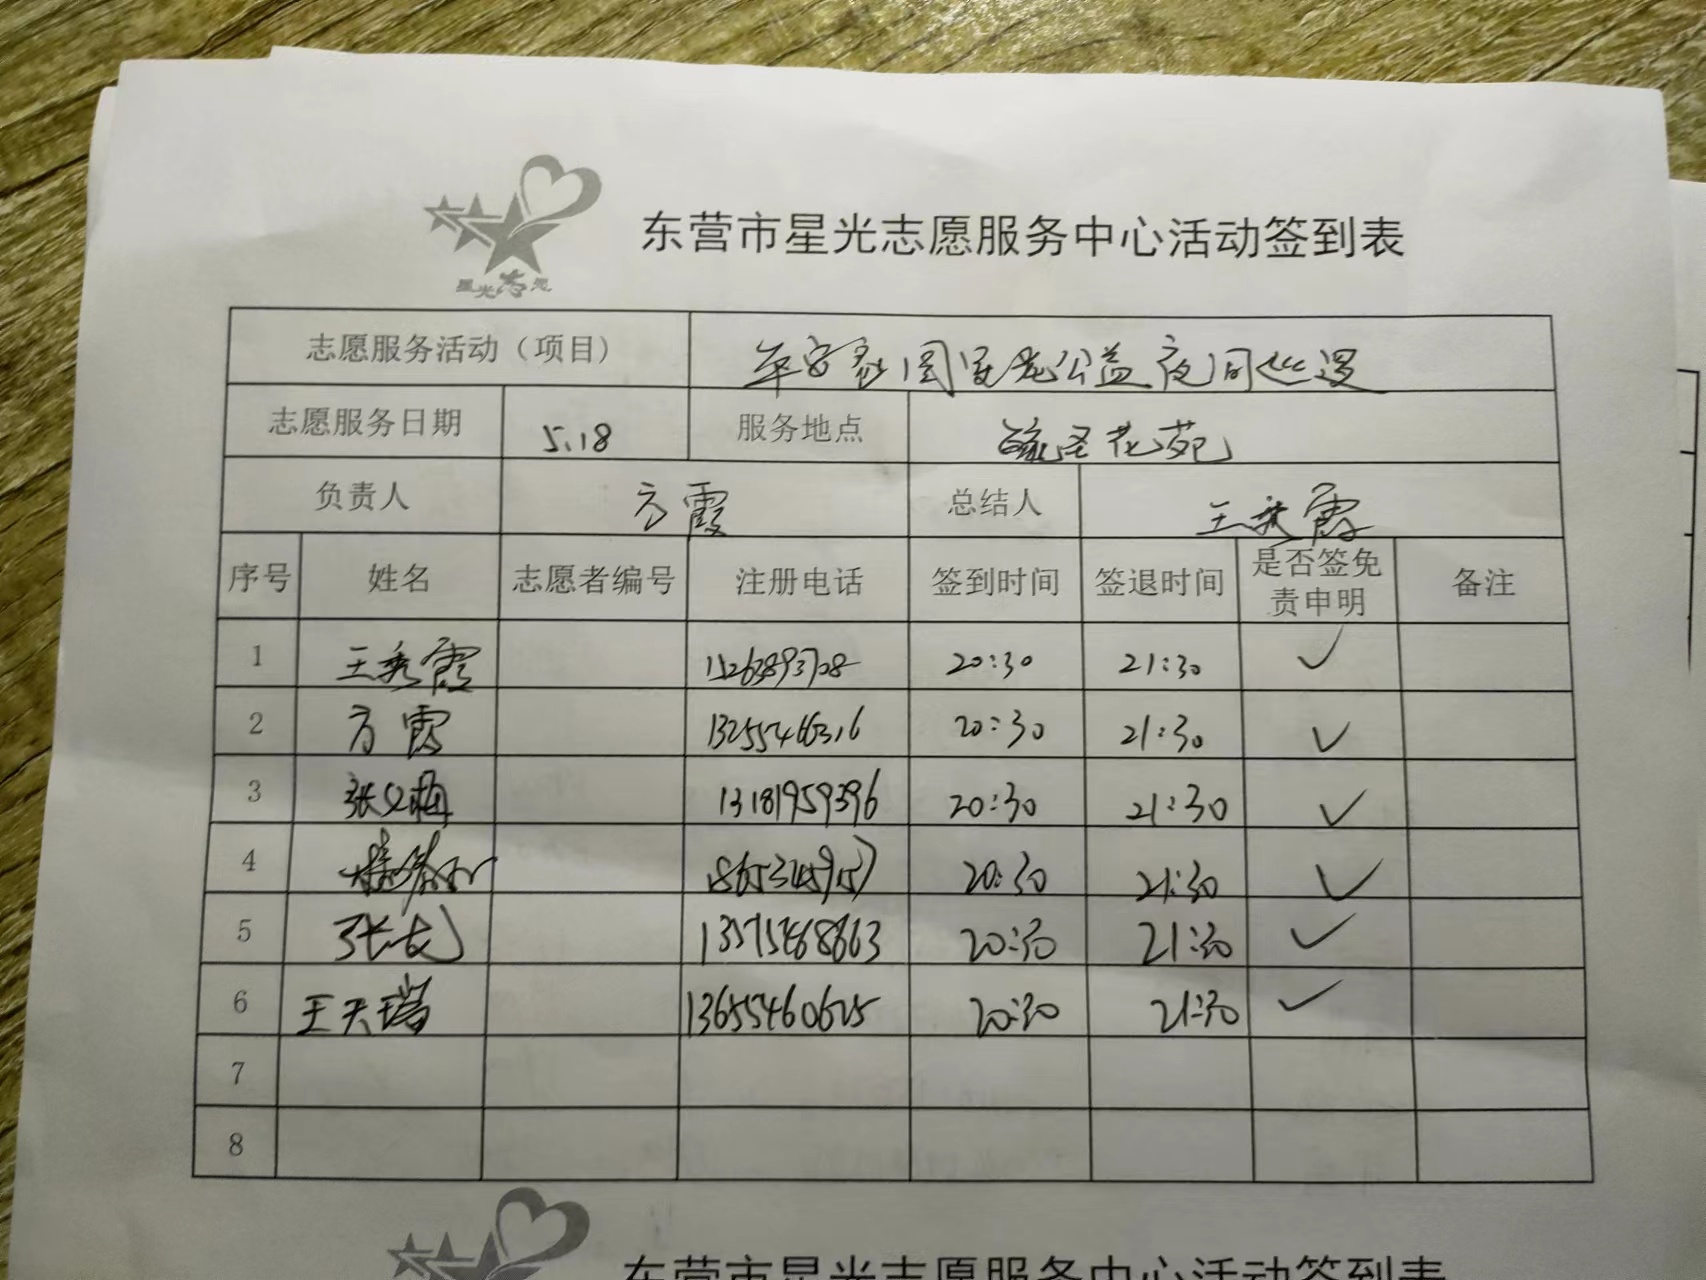 星光志愿
东营市星光志愿服务中心活动签到表
志愿服务活动（项目） 平安家园 公益夜间巡逻
志愿服务日期 5.18 服务地点 花苑
负责人 方霞 总结人 王秀霞
序号 姓名 志愿者编号 注册电话 签到时间 签退时间 是否签免责申明 备注
1 王秀霞 15263893708 20:30 21:30 ✓
2 方霞 13255466316 20:30 21:30 ✓
3 张义梅 13181959396 20:30 21:30 ✓
4 20:30 21:30 ✓
5 张龙 20:30 21:30 ✓
6 王天瑞 13655460625 20:30 21:30 ✓
7
8
东营市星光志愿服务中心活动签到表